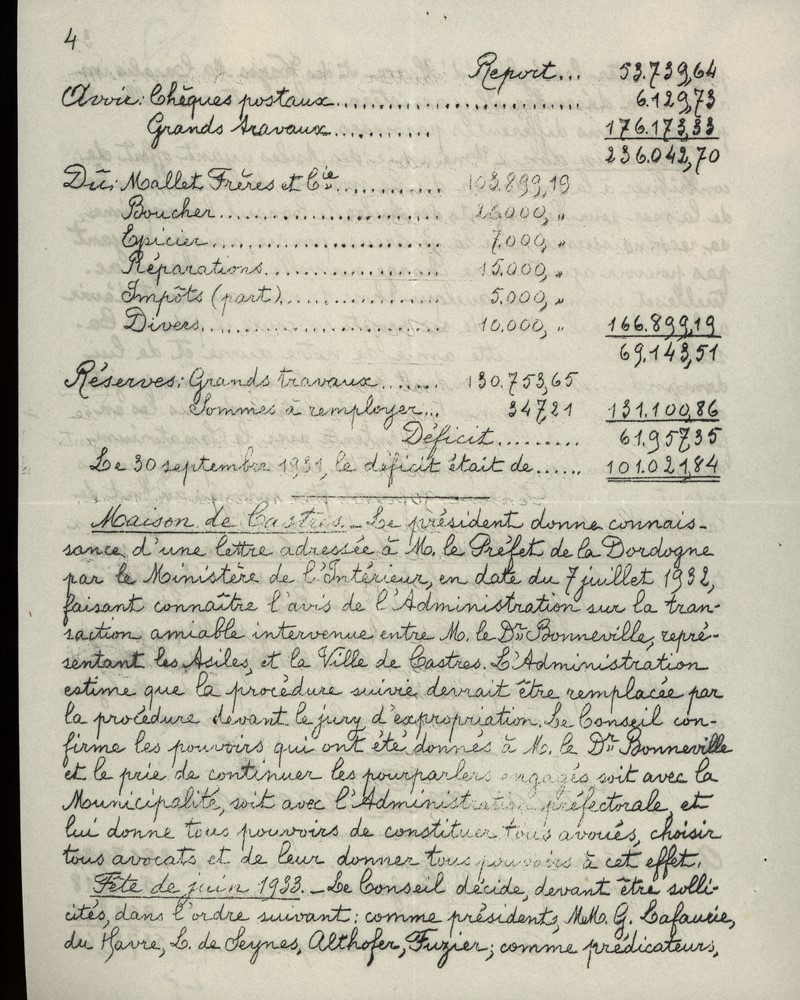 4
Report... 53.739,64
Avoir: Chèques postaux................................ 6.129,73
Grands travaux........... 176.173,33
236.042,70
Dû: Mallet Frères et Cie............ 103.899,19
Boucher......................... 26.000, „
Epicier.......................... 7.000, „
Réparations.................... 15.000, „
Impôts (part).................. 5.000, „
Divers........................... 10.000, „ 166.899,19
69.143,51
Réserves: Grands travaux....... 130.753,65
Sommes à remployer... 347,21 131.100,86
Déficit......... 61.957,35
Le 30 septembre 1931, le déficit était de...... 101.021,84
Maison de Castres._ Le président donne connais-
sance d'une lettre adressée à M. le Préfet de la Dordogne
par le Ministère de l'Intérieur, en date du 7 juillet 1932,
faisant connaître l'avis de l'Administration sur la tran-
saction amiable intervenue entre M. le Dr Bonneville, repré-
sentant les Asiles, et la Ville de Castres. L'Administration
estime que la procédure suivie devrait être remplacée par
la procédure devant le jury d'expropriation. Le Conseil con-
firme les pouvoirs qui ont été donnés à M. le Dr Bonneville
et le prie de continuer les pourparlers engagés soit avec la
Municipalité, soit avec l'Administration préfectorale, et
lui donne tous pouvoirs de constituer tous avoués, choisir
tous avocats et de leur donner tous pouvoirs à cet effet.
Fête de juin 1933._ Le Conseil décide, devant être solli-
cités, dans l'ordre suivant: comme présidents, MM. G. Lafaurie,
du Havre, L. de Seynes, Althofer, Fuzier; comme prédicateurs,